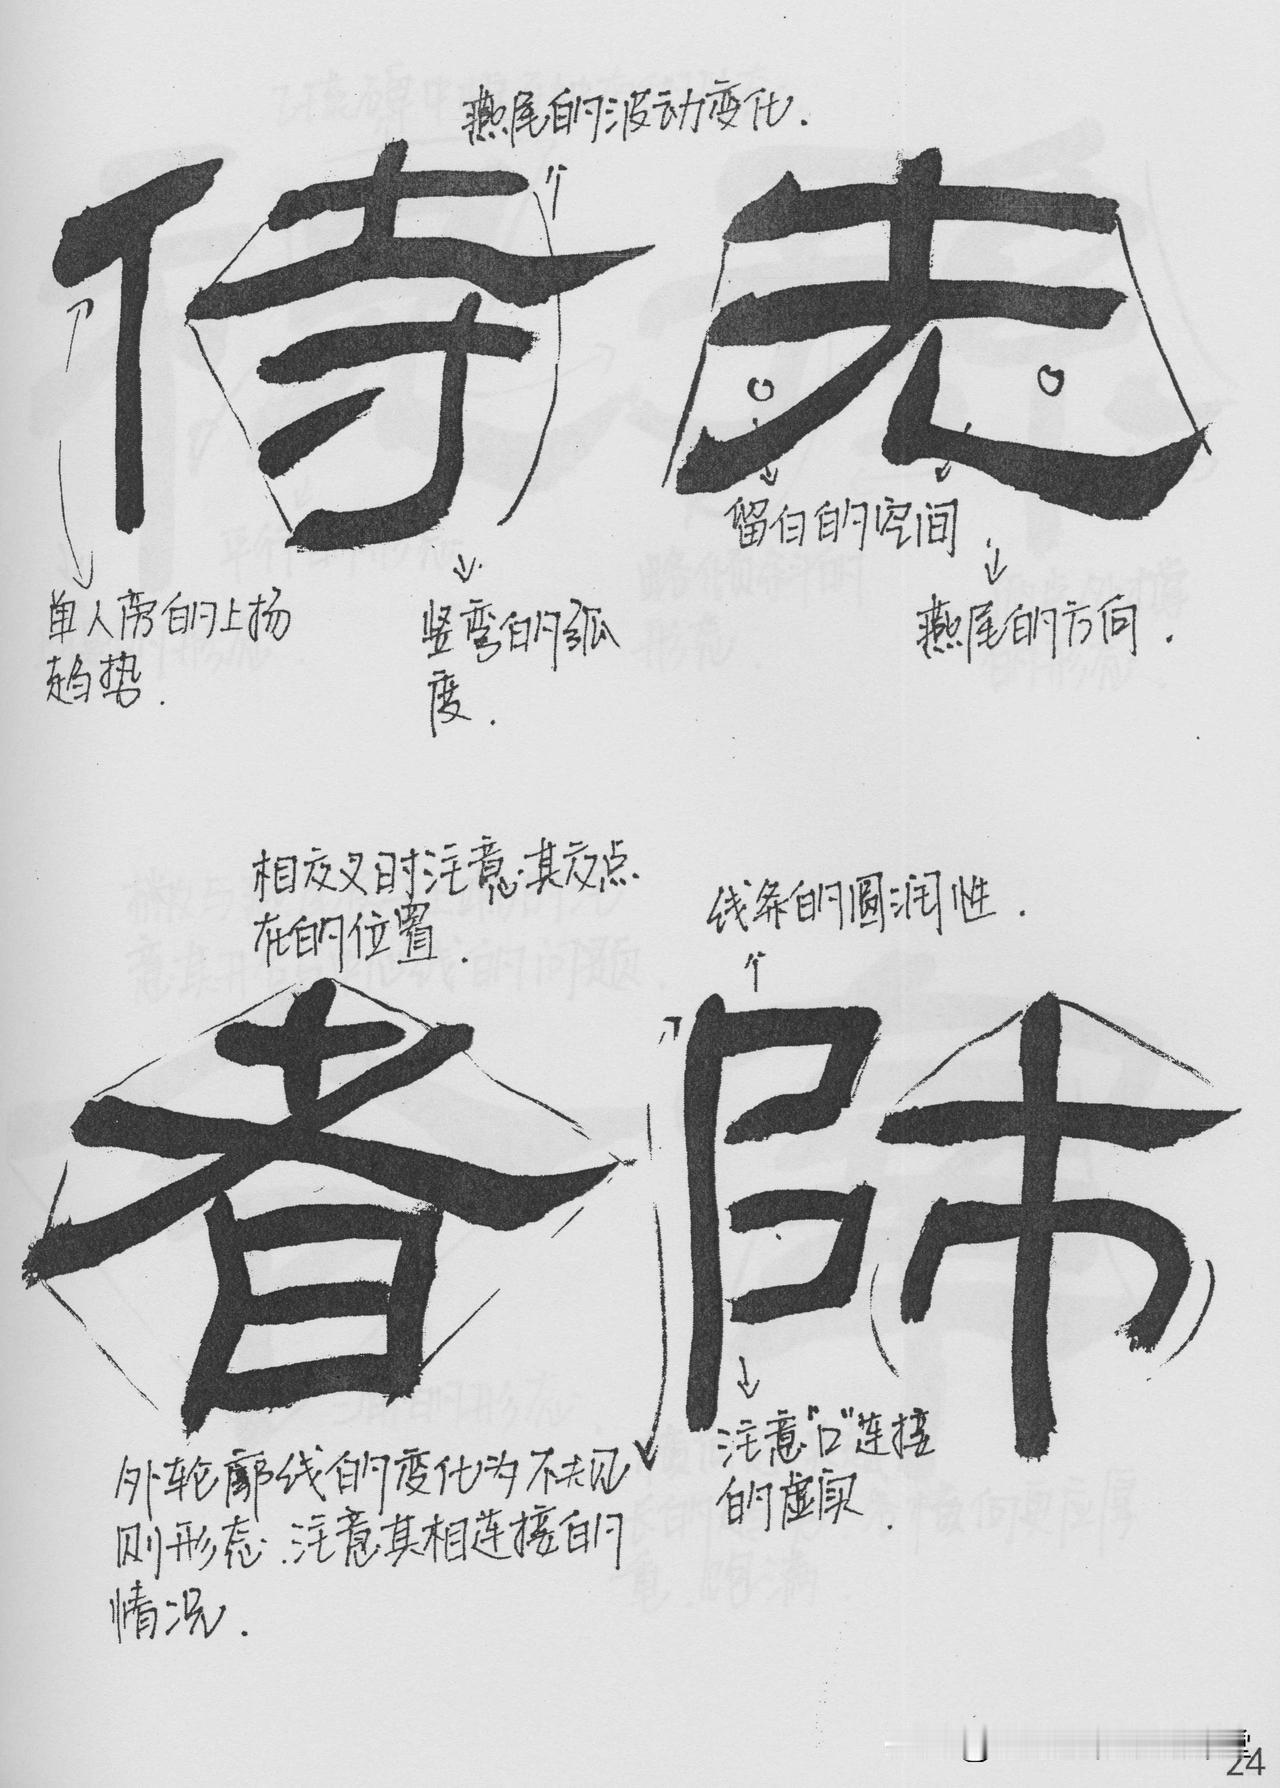 燕尾的波动变化.
侍 先
留白的空间
单人旁的上扬
趋势.
竖弯的弧
度.
燕尾的方向.
相交叉时注意其交点
在的位置.
线条的圆润性.
者 師
注意"口"连接
的虚实.
外轮廓线的变化为不规
则形态.注意其相连接的
情况.
24